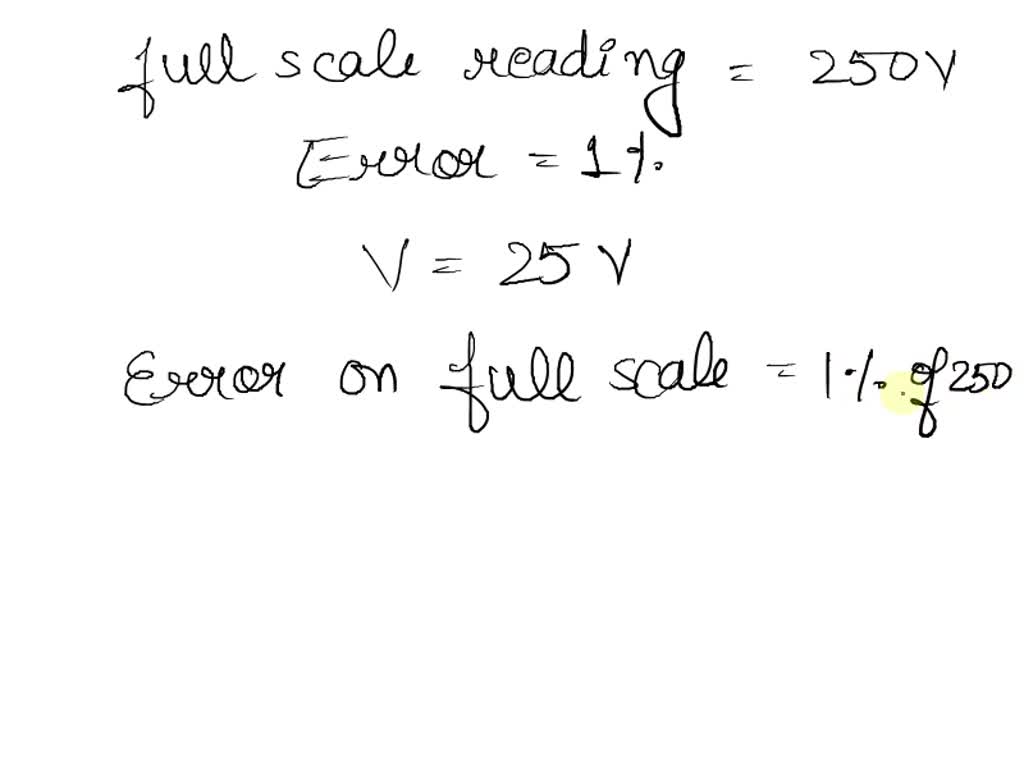 full scale reading = 250V
Error = 1%.
V = 25 V
Error on full scale = 1% of 250